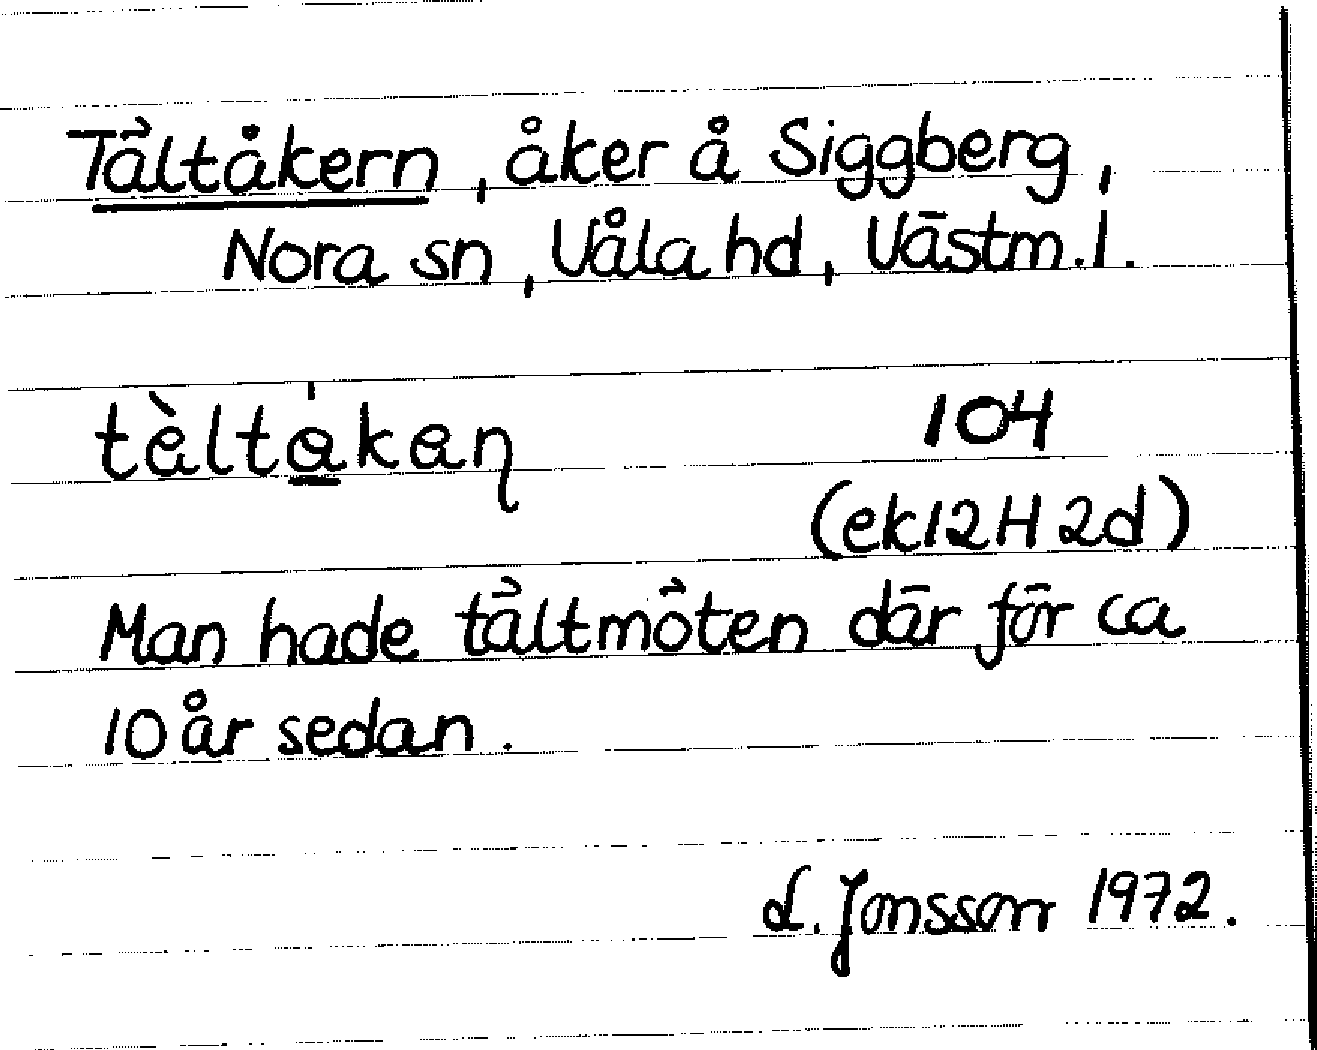 Tältåkern, åker å Siggberg,
Nora sn, Våla hd, Västm. l.
104
(ek 12H 2d)
Man hade tältmöten där för ca
10 år sedan.
L. Jonsson 1972.